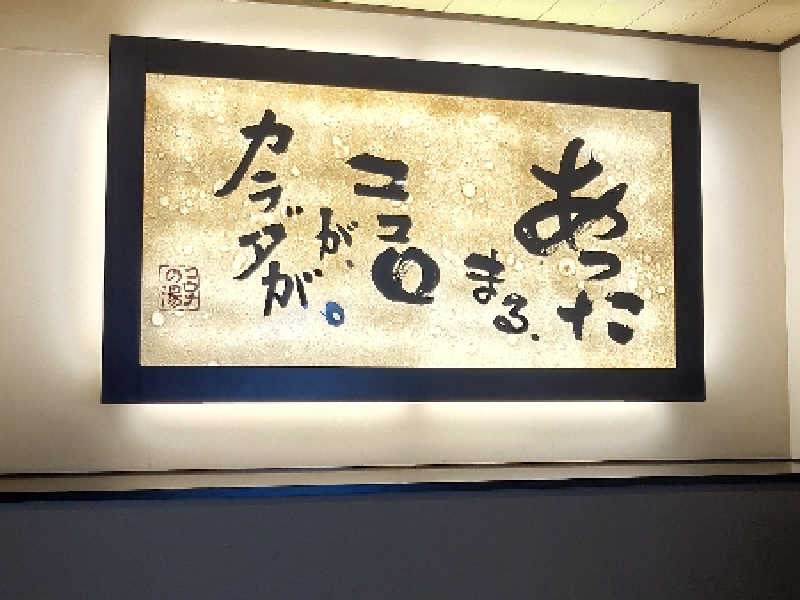 あった
まる、
ココロ
が、
カラダが。
ココチの湯